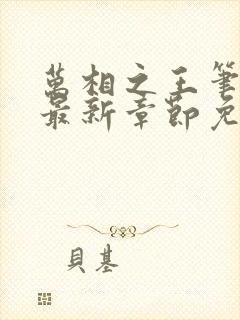 萬相之王筆
最新章節免
貝基